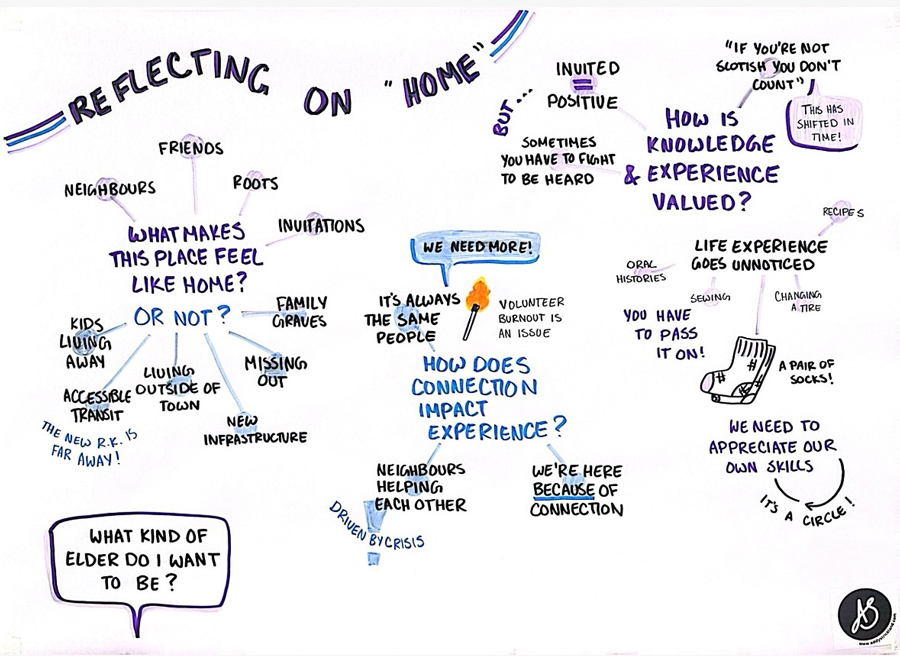 REFLECTING ON "HOME"
FRIENDS
NEIGHBOURS
ROOTS
INVITATIONS
WHAT MAKES
THIS PLACE FEEL
LIKE HOME?
OR NOT?
FAMILY
GRAVES
KIDS
LIVING
AWAY
ACCESSIBLE
TRANSIT
THE NEW R.K. IS
FAR AWAY!
LIVING
OUTSIDE OF
TOWN
MISSING
OUT
NEW
INFRASTRUCTURE
WHAT KIND OF
ELDER DO I WANT
TO BE?
WE NEED MORE!
IT'S ALWAYS
THE SAME
PEOPLE
VOLUNTEER
BURNOUT IS
AN ISSUE
HOW DOES
CONNECTION
IMPACT
EXPERIENCE?
NEIGHBOURS
HELPING
EACH OTHER
DRIVEN BY CRISIS
WE'RE HERE
BECAUSE OF
CONNECTION
INVITED
=
POSITIVE
BUT...
SOMETIMES
YOU HAVE TO FIGHT
TO BE HEARD
"IF YOU'RE NOT
SCOTISH YOU DON'T
COUNT"
THIS HAS
SHIFTED IN
TIME!
HOW IS
KNOWLEDGE
& EXPERIENCE
VALUED?
RECIPES
LIFE EXPERIENCE
GOES UNNOTICED
ORAL
HISTORIES
SEWING
CHANGING
A TIRE
YOU HAVE
TO PASS
IT ON!
A PAIR OF
SOCKS!
WE NEED TO
APPRECIATE OUR
OWN SKILLS
IT'S A CIRCLE!
AS